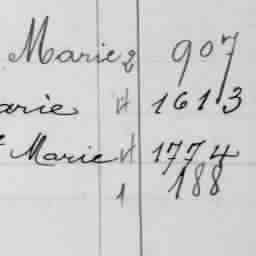 Marie 2 907
arie 1613
Marie 1774
1 188